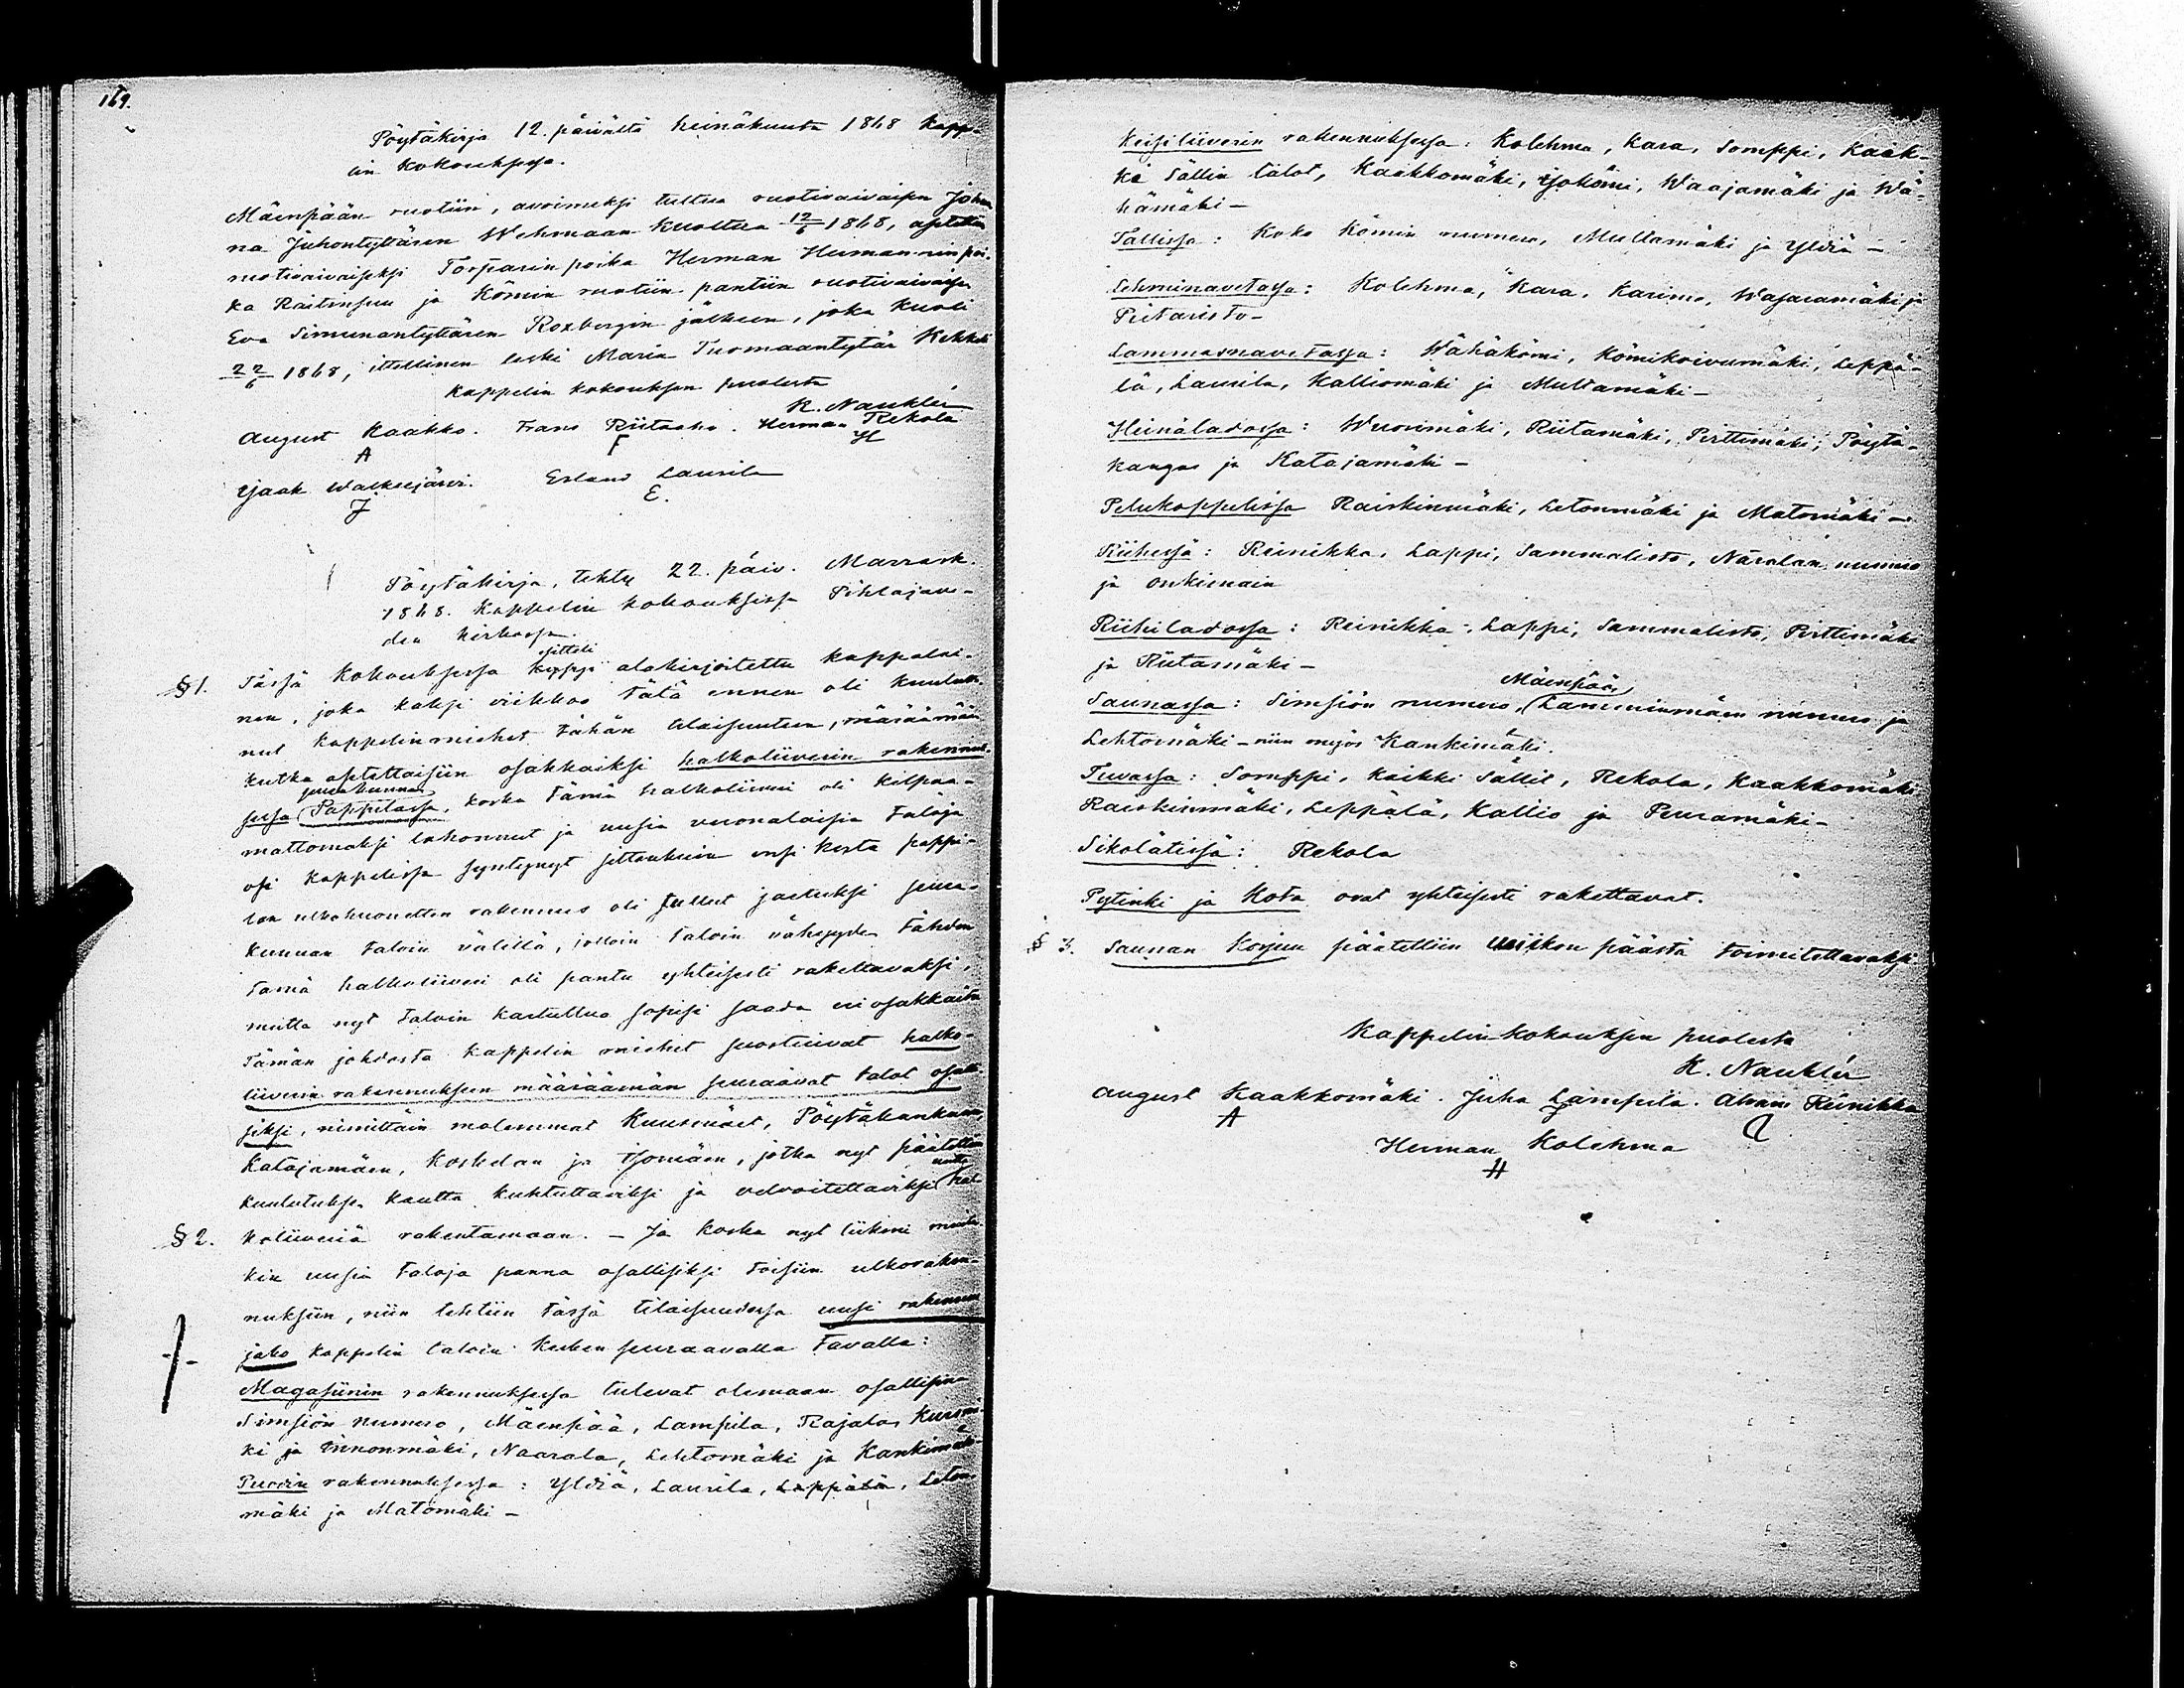 169.
Pöytäkirja 12. päivältä heinäkuuta 1868 kappe-
lin kokouksessa.
Mäenpään ruotiin, avoimeksi tultua ruotivaivaisen Johan
na Juhontyttären Wehmaan kuoltua 12/6 1868, otettiin
ruotivaivaiseksi Torparin poika Herman Hermanninpoi-
ka Raitinpuu ja Kömin ruotiin pantiin ruotivaivaisen
Eva Simunantyttären Roxbergin jälkeen, joka kuoli
22/6 1868, itellinen leski Maria Tuomaantytär Kekkoi
Kappelin kokouksen puolesta
K. Nauklér
August Kaakko. Frans Riitaaho. Herman Rekola
A F H
Isaak Walkeejärvi. Erland Laurila
J E.
Pöytäkirja, tehty 22. päiv. Marrask.
1868. Kappelin kokouksessa Pihlajave-
den kirkossa.
§ 1. Tässä kokouksessa esitteli alakirjoitettu kappalai-
nen, joka kaksi viikkoa tätä ennen oli kuulutta-
nut kappelin miehet tähän tilaisuuteen, määräämään
kutka otettaisiin osakkaiksi halkoliiverin rakennuk-
sessa seurakunnan Pappilassa, koska tämä halkoliiveri oli kelpaa-
mattomaksi lahonnut ja uusia vuonalaisia taloja
osi kappelissa syntynyt sittenkuin ensi kerta pappi-
lan ulkohuonetten rakennus oli tullut jaetuksi seura-
kunnan taloin välillä, jolloin taloin vähyyden tähden
tämä halkoliiveri oli pantu yhteisesti rakettavaksi,
mutta nyt taloin kartuttua sopisi saada eri osakkaita
Tämän johdosta kappelin miehet suostuivat halko-
liiverin rakennukseen määräämän seuraavat talot osalli-
siksi, nimittäin molemmat Kuusmäet, Pöytäkankaan
Katajamäen, Koskelan ja Isomäen, jotka nyt päätettiin
kuulutuksen kautta kuhtuttaviksi ja velvoitettaviksi uutta hal-
§ 2. koliiveriä rakentamaan. - Ja koska nyt liikeni muita-
kin uusia taloja panna osallisiksi toisiin ulkoraken-
nuksiin, niin tehtiin tässä tilaisuudessa uusi rakennus
jako kappelin taloin kesken seuraavalla tavalla:
Magasiinin rakennuksessa tulevat olemaan osallisina
Simsiön numero, Mäenpää, Lampila, Rajala, Kursu-
ki ja Innonmäki, Naarala, Lehtomäki ja Kankimäki-
Puodin rakennuksessa: Yldiä, Laurila, Leppälä, Leton-
mäki ja Matomäki -
Keisiliiverin rakennuksessa: Kolehma, Kara, Somppi, Kaik-
ki Sällin talot, Kaakkomäki, Isokömi, Waajamäki ja Wä-
hämäki -
Tallissa: Koko Kömin numero, Multamäki ja Yldiä -
Lehminavetassa: Kolehma, Kara, Karimo, Wasaramäki ja
Piitaristo -
Lammasnavetassa: Wähäkömi, Kömikoivumäki, Leppä-
lä, Laurila, Kalliomäki ja Multamäki -
Heinäladossa: Wuorimäki, Riitamäki, Perttimäki, Pöytä-
kangas ja Katajamäki -
Pelukoppelissa Raiskinmäki, Letonmäki ja Matomäki -
Riihessä: Reinikka, Lappi, Sammalisto, Näralan numero
ja Onkimain
Riihiladossa: Reinikka, Lappi, Sammalisto, Perttimäki
ja Riitamäki -
Saunassa: Simsiön numero, Mäenpää, Lamminmäen numero ja
Lehtomäki - niin myös Kankimäki.
Tuvassa: Somppi, Kaikki Sällit, Rekola, Kaakkomäki
Raiskinmäki, Leppälä, Kallio ja Peuramäki -
Sikolätissä: Rekola
Pytinki ja Kota ovat yhteisesti rakettavat.
§ 3. Saunan korjuu päätettiin viikon päästä toimitettavaksi
Kappelin kokouksen puolesta
K. Nauklér
August Kaakkomäki. Juha Lampila. Abram Reinikka
A J A
Herman Kolehma
H